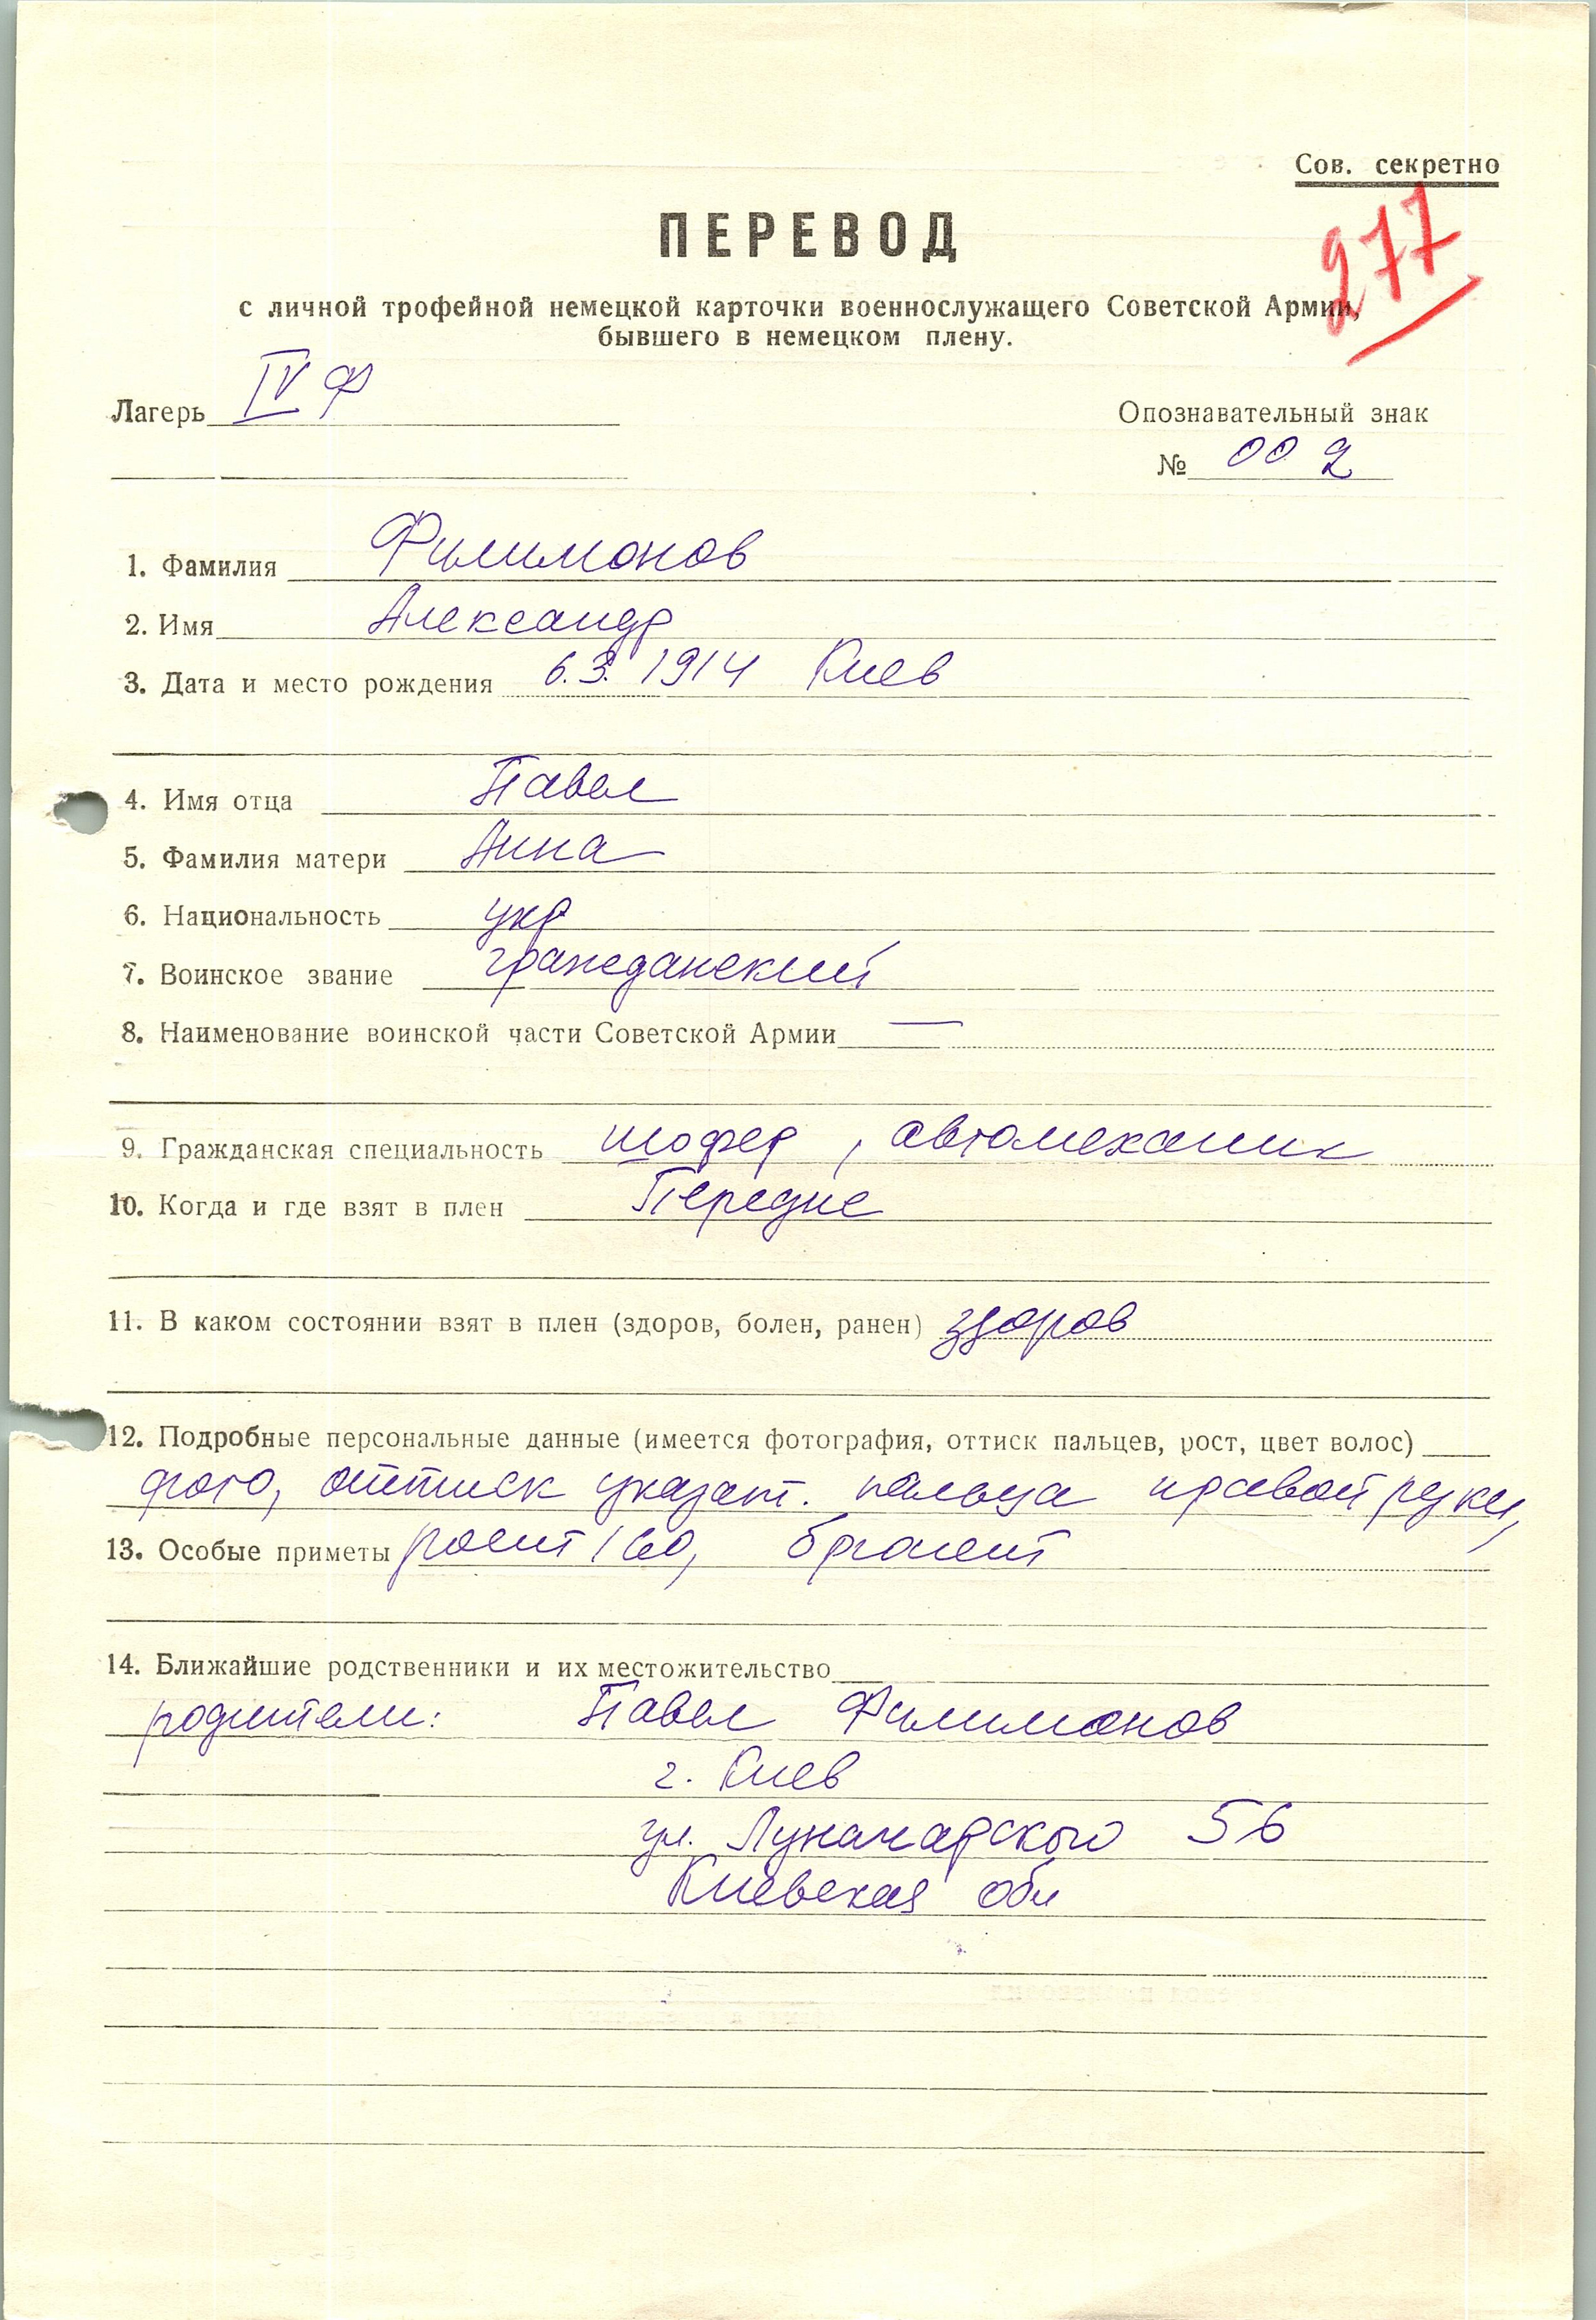 Сов. секретно
277
ПЕРЕВОД
с личной трофейной немецкой карточки военнослужащего Советской Армии,
бывшего в немецком плену.
Лагерь IV Ф
Опознавательный знак
№ 002
1. Фамилия Филимонов
2. Имя Александр
3. Дата и место рождения 6.3.1914 Киев
4. Имя отца Павел
5. Фамилия матери Анна
6. Национальность укр
7. Воинское звание гражданский
8. Наименование воинской части Советской Армии —
9. Гражданская специальность шофер, автомеханик
10. Когда и где взят в плен
11. В каком состоянии взят в плен (здоров, болен, ранен) здоров
12. Подробные персональные данные (имеется фотография, оттиск пальцев, рост, цвет волос)
фото, оттиск указат. пальца правой руки,
13. Особые приметы рост 160, брюнет
14. Ближайшие родственники и их местожительство
родители: Павел Филимонов
г. Киев
ул. Луначарского 56
Киевская обл